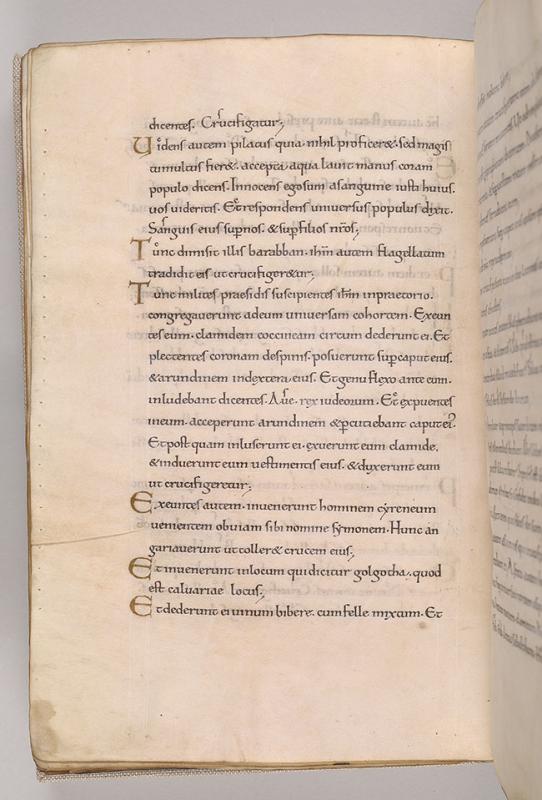 dicentes. Crucifigatur;
Uidens autem pilatus quia nihil profic&. sed magis
tumultus fier&. accepta aqua lauit manus coram
populo dicens. Innocens egosum asanguine iusti huius.
uos uideritis. Etrespondens uniuersus populus dixit.
Sanguis eius supnos. & supfilios nr̄os;
Tunc dimisit illis barabban. ihm̄ autem flagellatum
tradidit eis ut crucifiger&ur;
Tunc milites praesidis suscipientes ihm̄ inpraetorio.
congregauerunt adeum uniuersam cohortem. Exeun
tes eum. clamidem coccineam circum dederunt ei. Et
plectentes coronam despinis. posuerunt supcaput eius.
& arundinem indextera eius. Etgenu flexo ante eum.
inludebant dicentes. Aue. rex iudeorum. Et expuentes
ineum. acceperunt arundinem & pcutiebant caput ei
Etpost quam inluserunt ei. exuerunt eum clamide.
& induerunt eum uestimentis eius. & duxerunt eum
ut crucifigeretur;
Exeuntes autem. inuenerunt hominem cyreneum
uenientem obuiam sibi nomine symonem. Hunc an
gariauerunt ut toller& crucem eius;
Et inuenerunt inlocum qui dicitur golgotha. quod
est caluariae locus;
Et dederunt ei uinum bibere. cum felle mixtum. Et